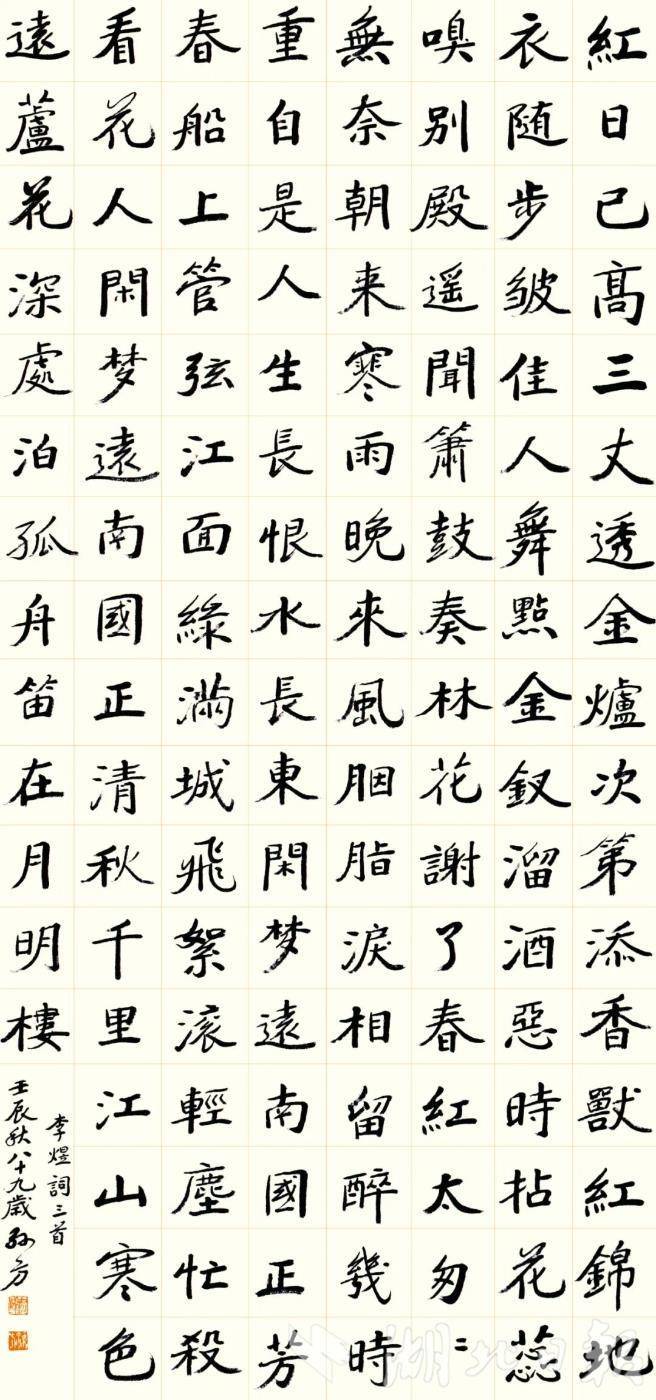 紅日已高三丈透金爐次第添香獸紅錦地
衣随步皱佳人舞點金釵溜酒惡時拈花蕊
嗅别殿遥聞簫鼓奏林花謝了春紅太匆〻
無奈朝来寒雨晚來風胭脂淚相留醉幾時
重自是人生長恨水長東閑梦遠南國正芳
春船上管弦江面綠滿城飛絮滚輕塵忙殺
看花人閑梦遠南國正清秋千里江山寒色
遠蘆花深處泊孤舟笛在月明樓
李煜詞三首
壬辰秋八十九歲孙方
湖北日報